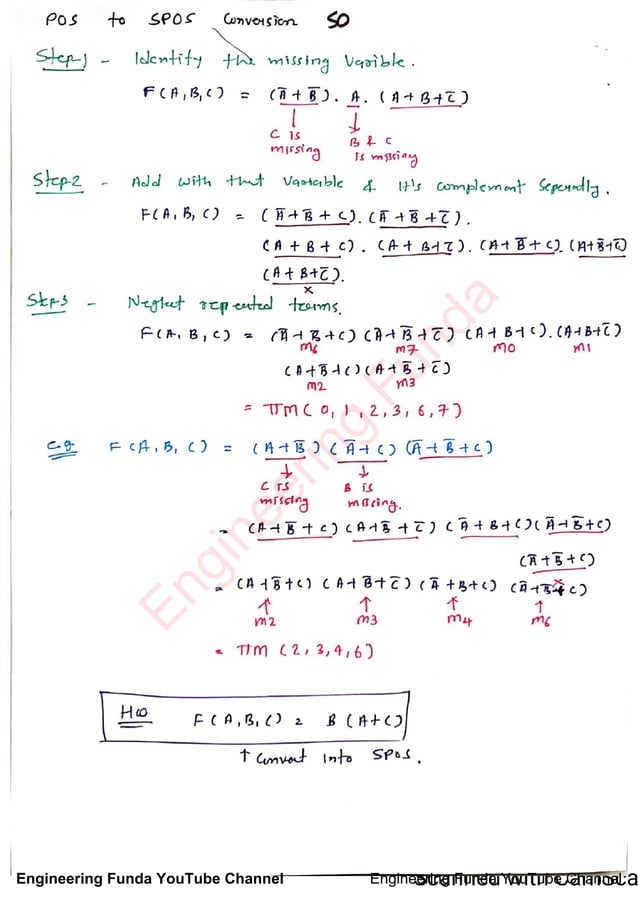 POS to SPOS Conversion 50
Step-1 - Identify the missing Varible.
F(A,B,C) = (A̅+B̅). A. (A+B+C̅)
C is missing
B & C is missing
Step-2 - Add with that Variable & It's complement Seperatly.
F(A,B,C) = (A̅+B̅+C).(A̅+B̅+C̅).
(A+B+C).(A+B+C̅).(A+B̅+C).(A+B̅+C̅)
(A+B+C̅).
×
Step3 - Neglect repeated terms.
F(A,B,C) = (A̅+B̅+C)(A̅+B̅+C̅)(A+B+C).(A+B+C̅)
M6 M7 M0 M1
(A+B̅+C)(A+B̅+C̅)
M2 M3
= ΠM(0,1,2,3,6,7)
e.g F(A,B,C) = (A+B̅)(A̅+C)(A̅+B̅+C)
C is missing
B is missing.
= (A+B̅+C)(A+B̅+C̅)(A̅+B+C)(A̅+B̅+C)
(A̅+B̅+C)
×
= (A+B̅+C)(A+B̅+C̅)(A̅+B+C)(A̅+B̅+C)
M2 M3 M4 M6
= ΠM(2,3,4,6)
HW F(A,B,C) = B(A+C)
↑ Convert into SPOS.
Engineering Funda
Engineering Funda YouTube Channel
Engineering Funda YouTube Channel